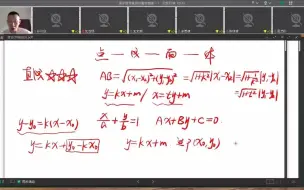 点 — 线 — 面 — 体
直线 ☆☆☆ AB=√(x₁-x₂)²+(y₁-y₂)² = √1+k² |x₁-x₂| = √1+1/k² |y₁-y₂|
y=kx+m / x=ty+m = √1+t² |y₁-y₂|
y-y₀=k(x-x₀) x/a+y/b=1 Ax+By+C=0
y=kx+y₀-kx₀ y=kx+m 过P(x₀,y₀)